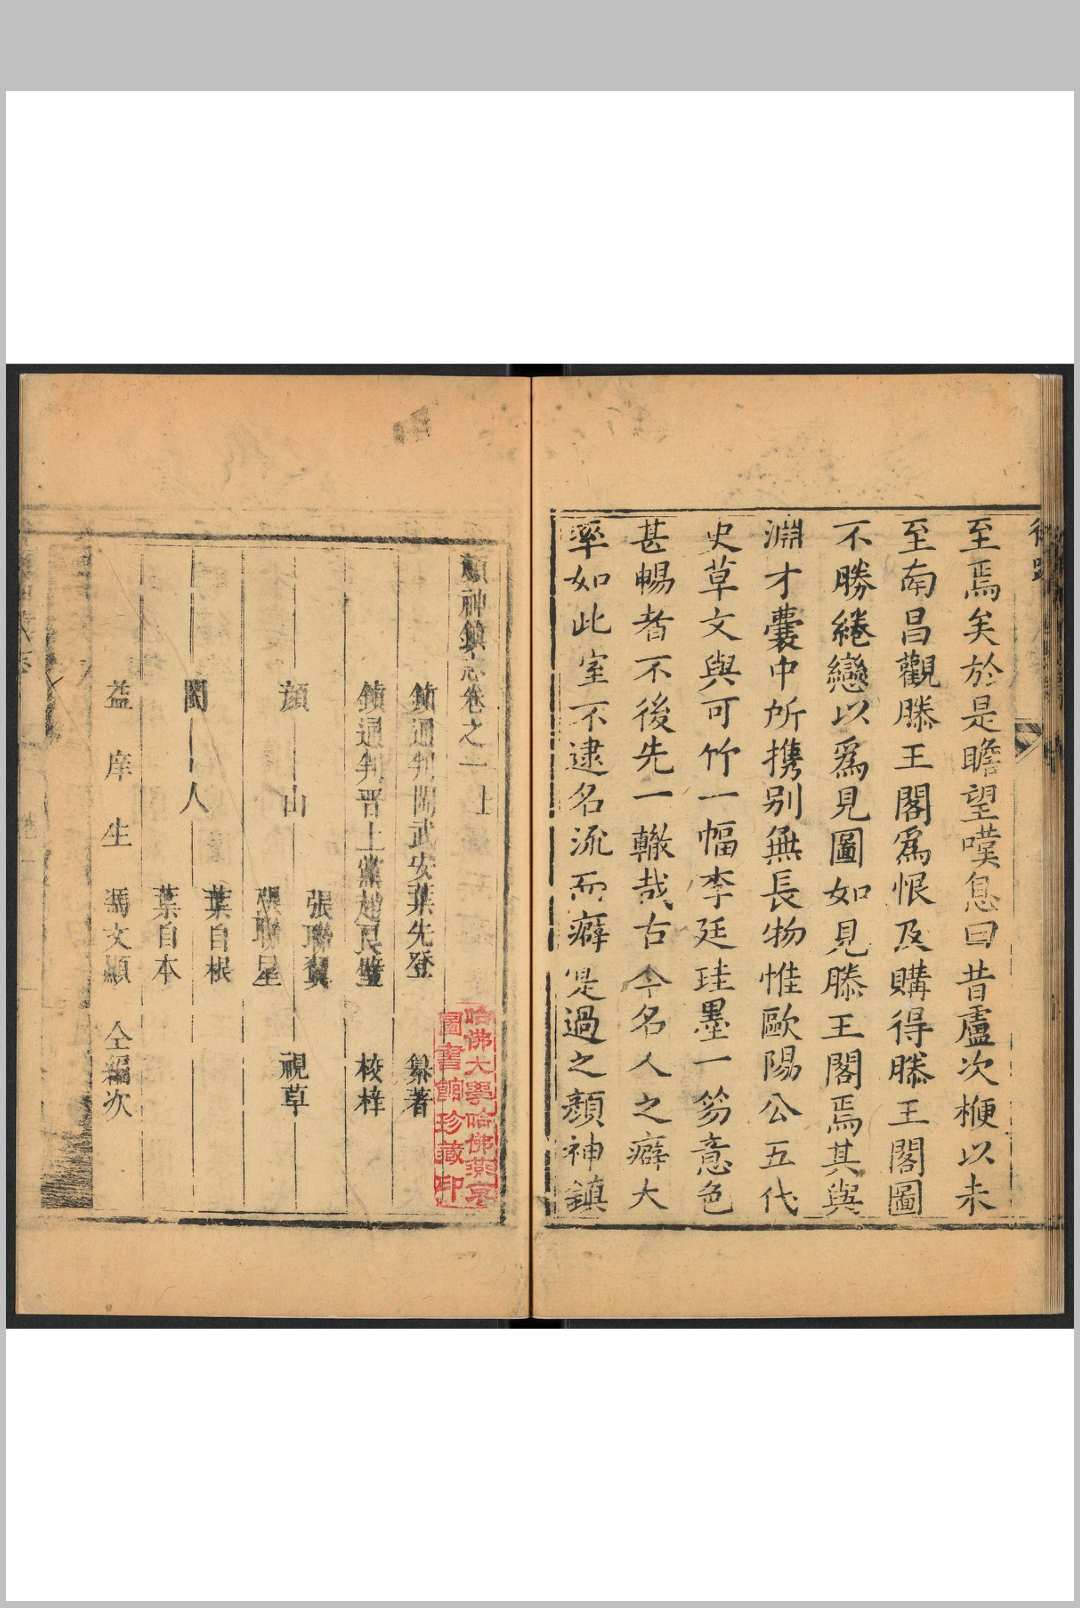 至焉矣於是瞻望嘆息曰昔盧次楩以未
至南昌觀滕王閣爲恨及購得滕王閣圖
不勝綣戀以爲見圖如見滕王閣焉其與
淵才囊中所携别無長物惟歐陽公五代
史草文與可竹一幅李廷珪墨一笏意色
甚暢者不後先一轍哉古今名人之癖大
率如此室不逮名流而癖寔過之顏神鎮
顏神鎮志卷之一上
鎮通判閩武安葉先登 纂著
鎮通判晋上黨趙良璧 校梓
顏山 張聯翼
張聯星 視草
閩人 葉自根
葉自本
益庠生 馮文顯 仝編次
哈佛大學哈佛燕京
圖書館珍藏印